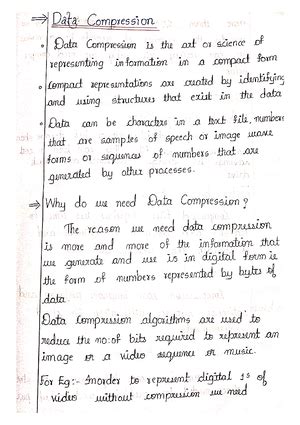 ⇒ Data Compression
• Data Compression is the art or science of
representing information in a compact form
• Compact representations are created by identifying
and using structures that exist in the data
• Data can be characters in a text file, numbers
that are samples of speech or image wave
forms or sequences of numbers that are
generated by other processes.
⇒ Why do we need Data Compression?
The reason we need data compression
is more and more of the information that
we generate and use is in digital form is
the form of numbers represented by bytes of
data.
Data Compression algorithms are used to
reduce the no: of bits required to represent an
image or a video sequence or music.
For Eg:- Inorder to represent digital 1s of
video without compression we need